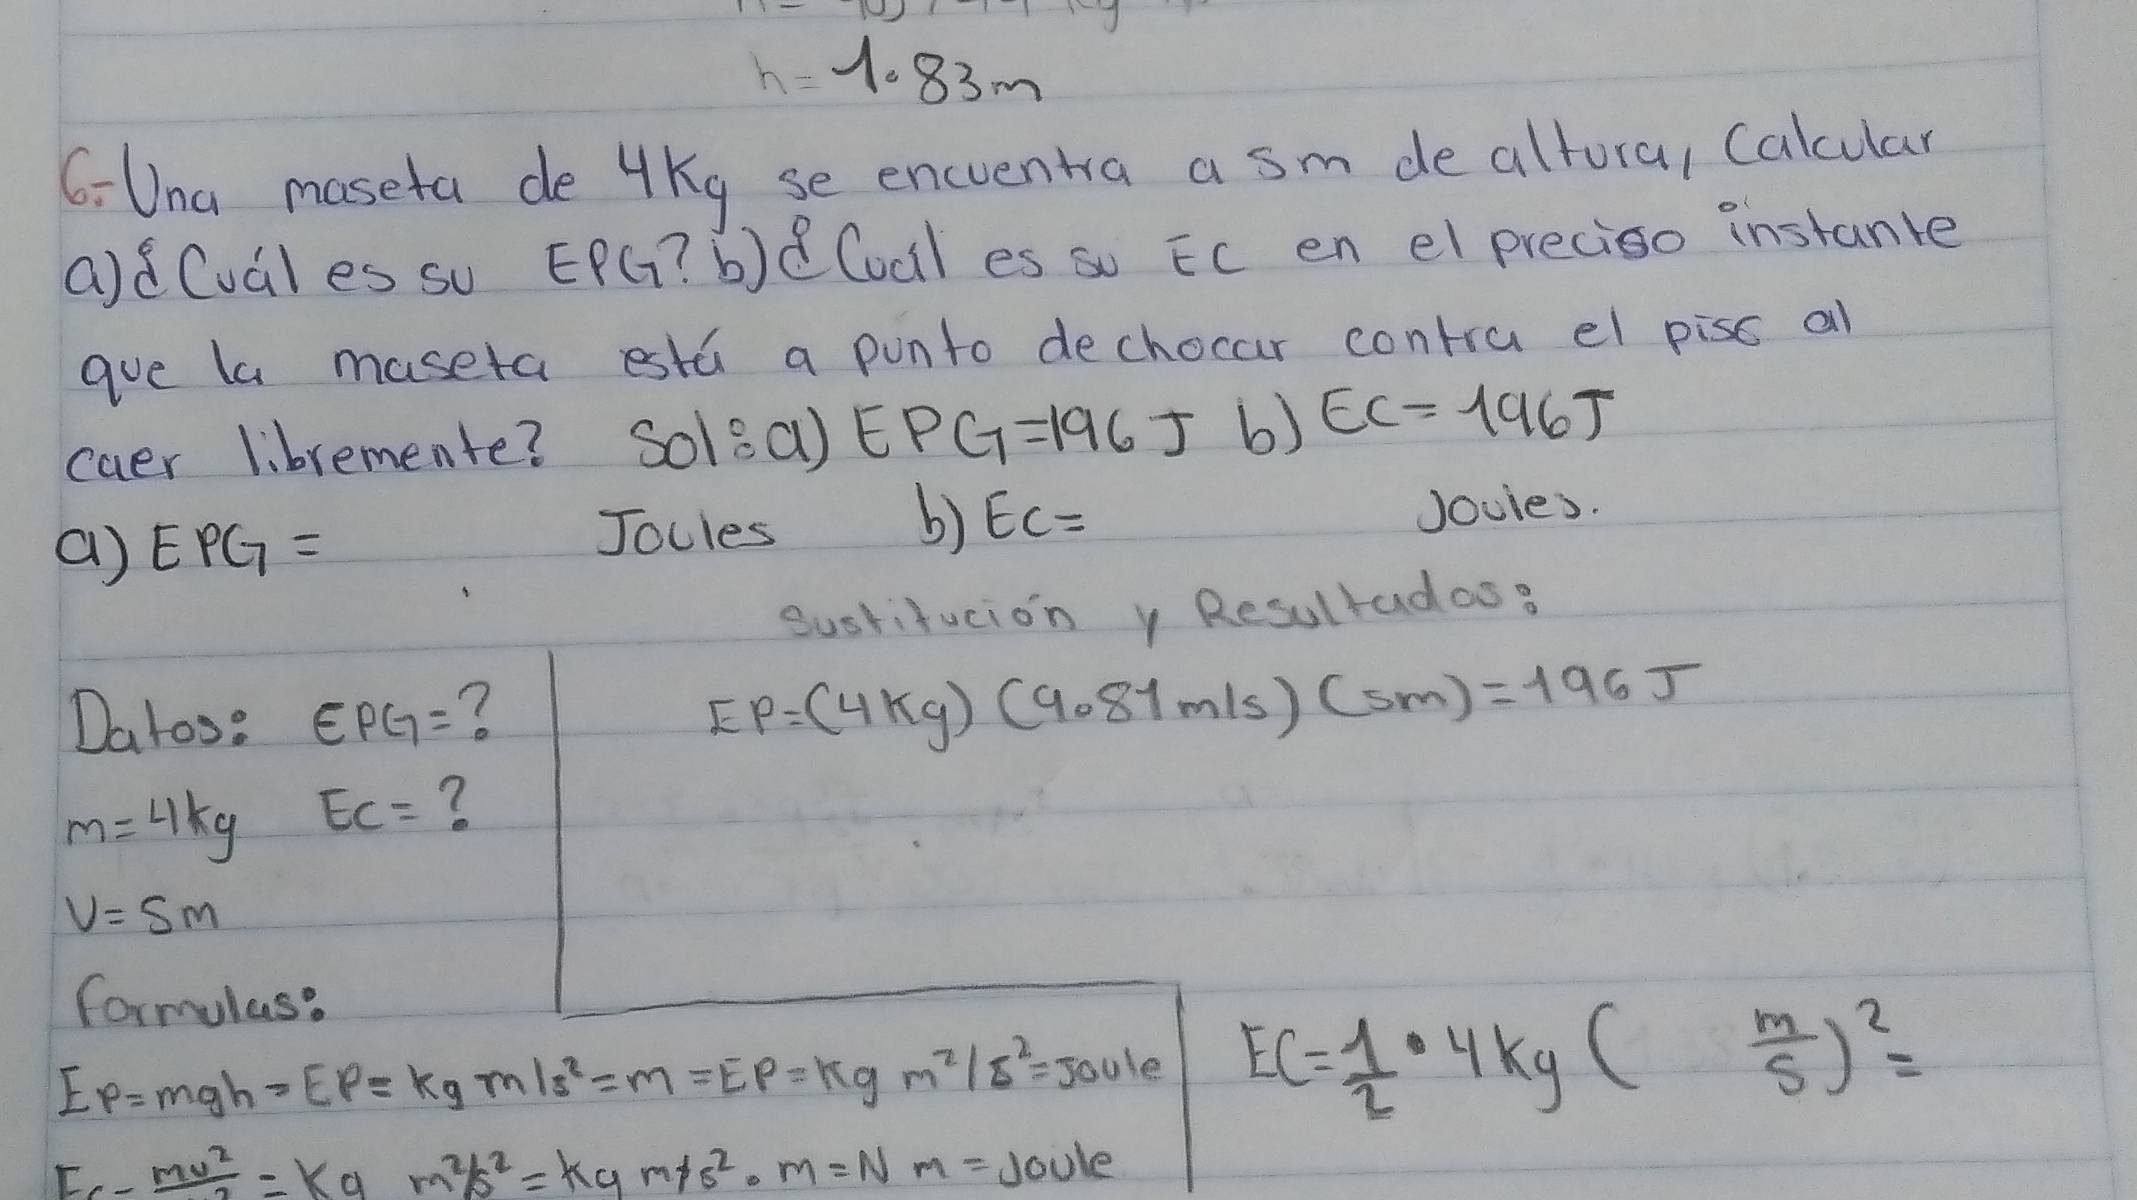 h=1.83m
6.-Una maseta de 4Kg se encuentra a 5m de altura, Calcular
a)¿Cuál es su EPG? b)¿Cuál es su EC en el preciso instante
que la maseta está a punto de chocar contra el piso al
caer libremente? Sol: a) EPG=196 J b) EC=196J
a) EPG= Joules b) Ec= Joules.
Sustitución y Resultados:
Datos: EPG=?
EP=(4Kg) (9.81m/s) (5m)=196J
m=4kg Ec=?
V=5m
formulas:
Ep=mgh=EP=kg m/s²=m=EP=Kg m²/s²=Joule
EC=1/2 • 4kg ( m/s)²=
Ec=mv²/2=Kg m²/s²=kg m/s². m=N m=Joule